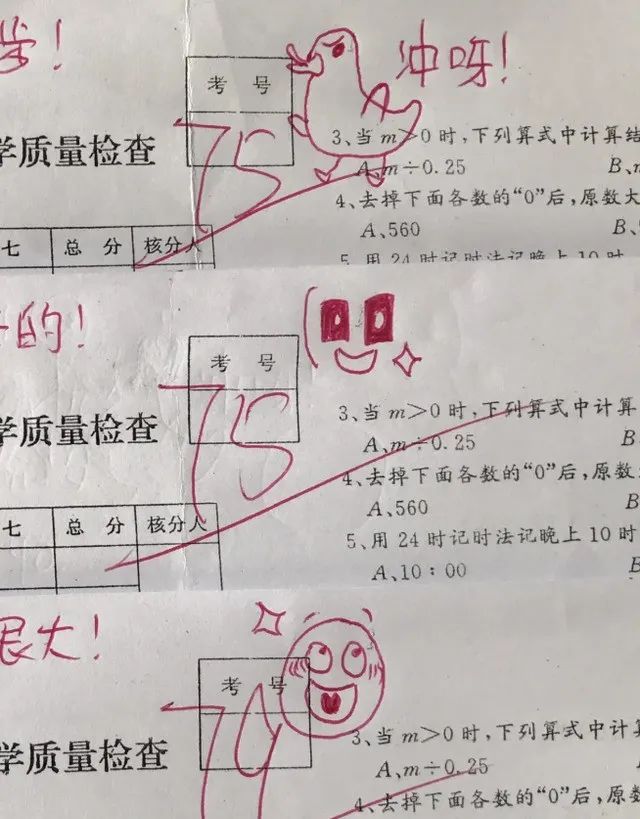 学!
冲呀!
考 号
75
学质量检查
3、当 m>0 时,下列算式中计算结
A、m÷0.25
B、
4、去掉下面各数的“0”后,原数大
A、560
B、
七 总 分 核分人
5、用 24 时记时法记晚上 10 时
的!
考 号
75
学质量检查
3、当 m>0 时,下列算式中计算
A、m÷0.25
B
4、去掉下面各数的“0”后,原数
A、560
B
七 总 分 核分人
5、用 24 时记时法记晚上 10 时
A、10:00
B
很大!
考 号
学质量检查
3、当 m>0 时,下列算式中计算
A、m÷0.25
4、去掉下面各数的“0”后,原数